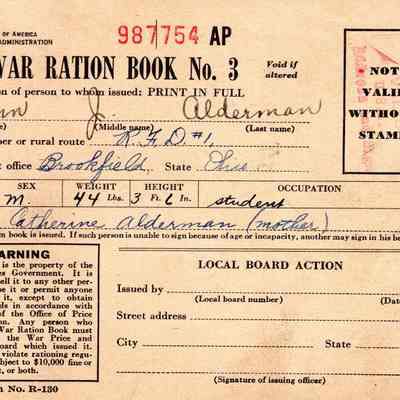 OF AMERICA
ADMINISTRATION
987754 AP
WAR RATION BOOK No. 3
Void if
altered
NOT
VALI
WITHO
STAM
on of person to whom issued: PRINT IN FULL
J. Alderman
(Middle name) (Last name)
er or rural route R.F.D. #1,
t office Brookfield, State Ohio
SEX WEIGHT HEIGHT OCCUPATION
M. 44 Lbs. 3 Ft. 6 In. student
Catherine Alderman (mother)
on book is issued. If such person is unable to sign because of age or incapacity, another may sign in his be
ARNING
is the property of the
es Government. It is
sell it to any other per-
se it or permit anyone
e it, except to obtain
ds in accordance with
of the Office of Price
on. Any person who
War Ration Book must
the War Price and
oard which issued it.
violate rationing regu-
ubject to $10,000 fine or
t, or both.
LOCAL BOARD ACTION
Issued by
(Local board number) (Da
Street address
City State
(Signature of issuing officer)
m No. R-130